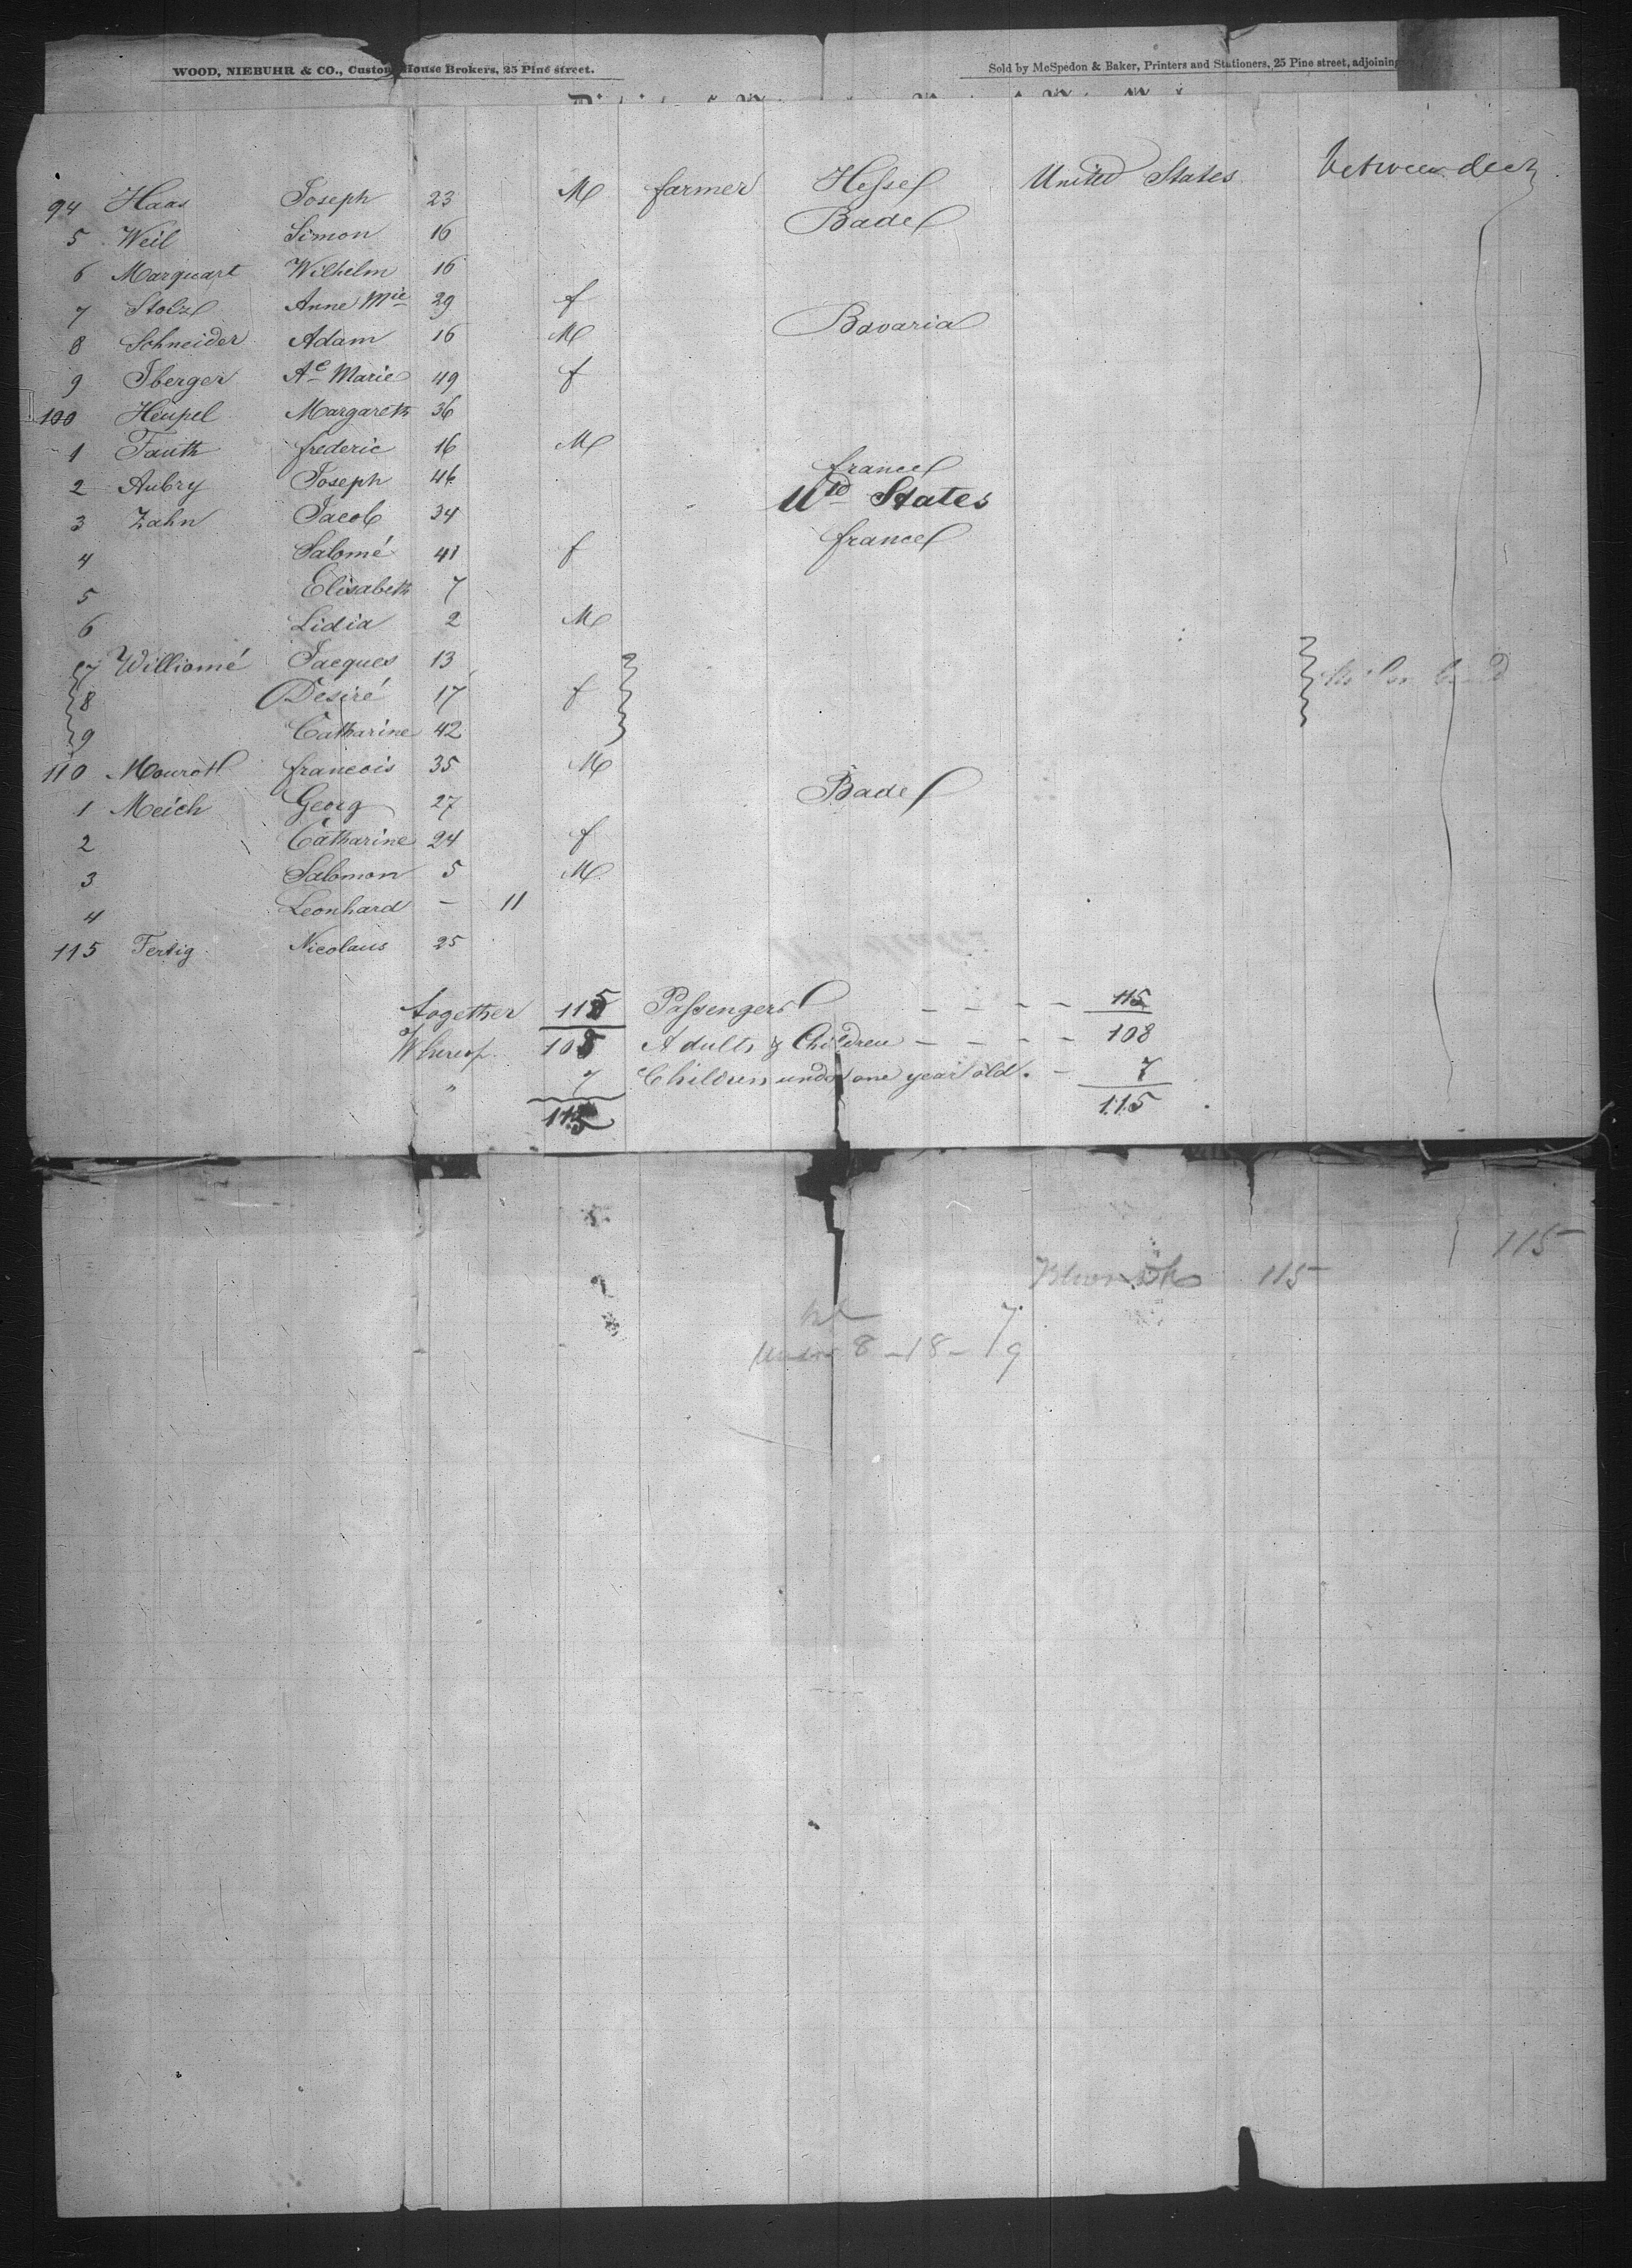 WOOD, NIEBUHR & CO., Custom House Brokers, 25 Pine street. Sold by McSpedon & Baker, Printers and Stationers, 25 Pine street, adjoining
94 Haas Joseph 23 M farmer Hesse United States between deck
5 Weil Simon 16 Bade
6 Marquart Wilhelm 16
7 Stolz Anne Mie 29 f
8 Schneider Adam 16 M Bavaria
9 Iberger Ae Marie 49 f
100 Heupel Margareth 36
1 Fauth frederic 16 M
2 Aubry Joseph 46 france
3 Zahn Jacob 34 Utd States
4 Salomé 41 f france
5 Elisabeth 7
6 Lidia 2 M
7 Williomé Jacques 13
8 Desiré 17 f
9 Catharine 42
110 Mourot francois 35 M
1 Meich Georg 27 Bade
2 Catharine 24 f
3 Salomon 5 M
4 Leonhard – 11
115 Fertig Nicolaus 25
together 115 Passengers – – – – 115
Whereof 108 Adults & Children – – – – 108
" 7 Children under one year old. – 7
115 115
115
115
under 8 – 18 – 19